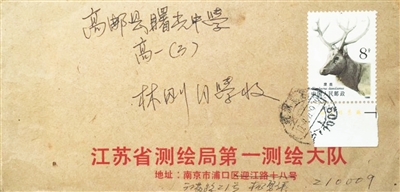 高邮县曙光中学
高一(3)
林刚同学收
8分
中国人民邮政
江苏省测绘局第一测绘大队
地址：南京市浦口区迎江路十八号
21号
210009